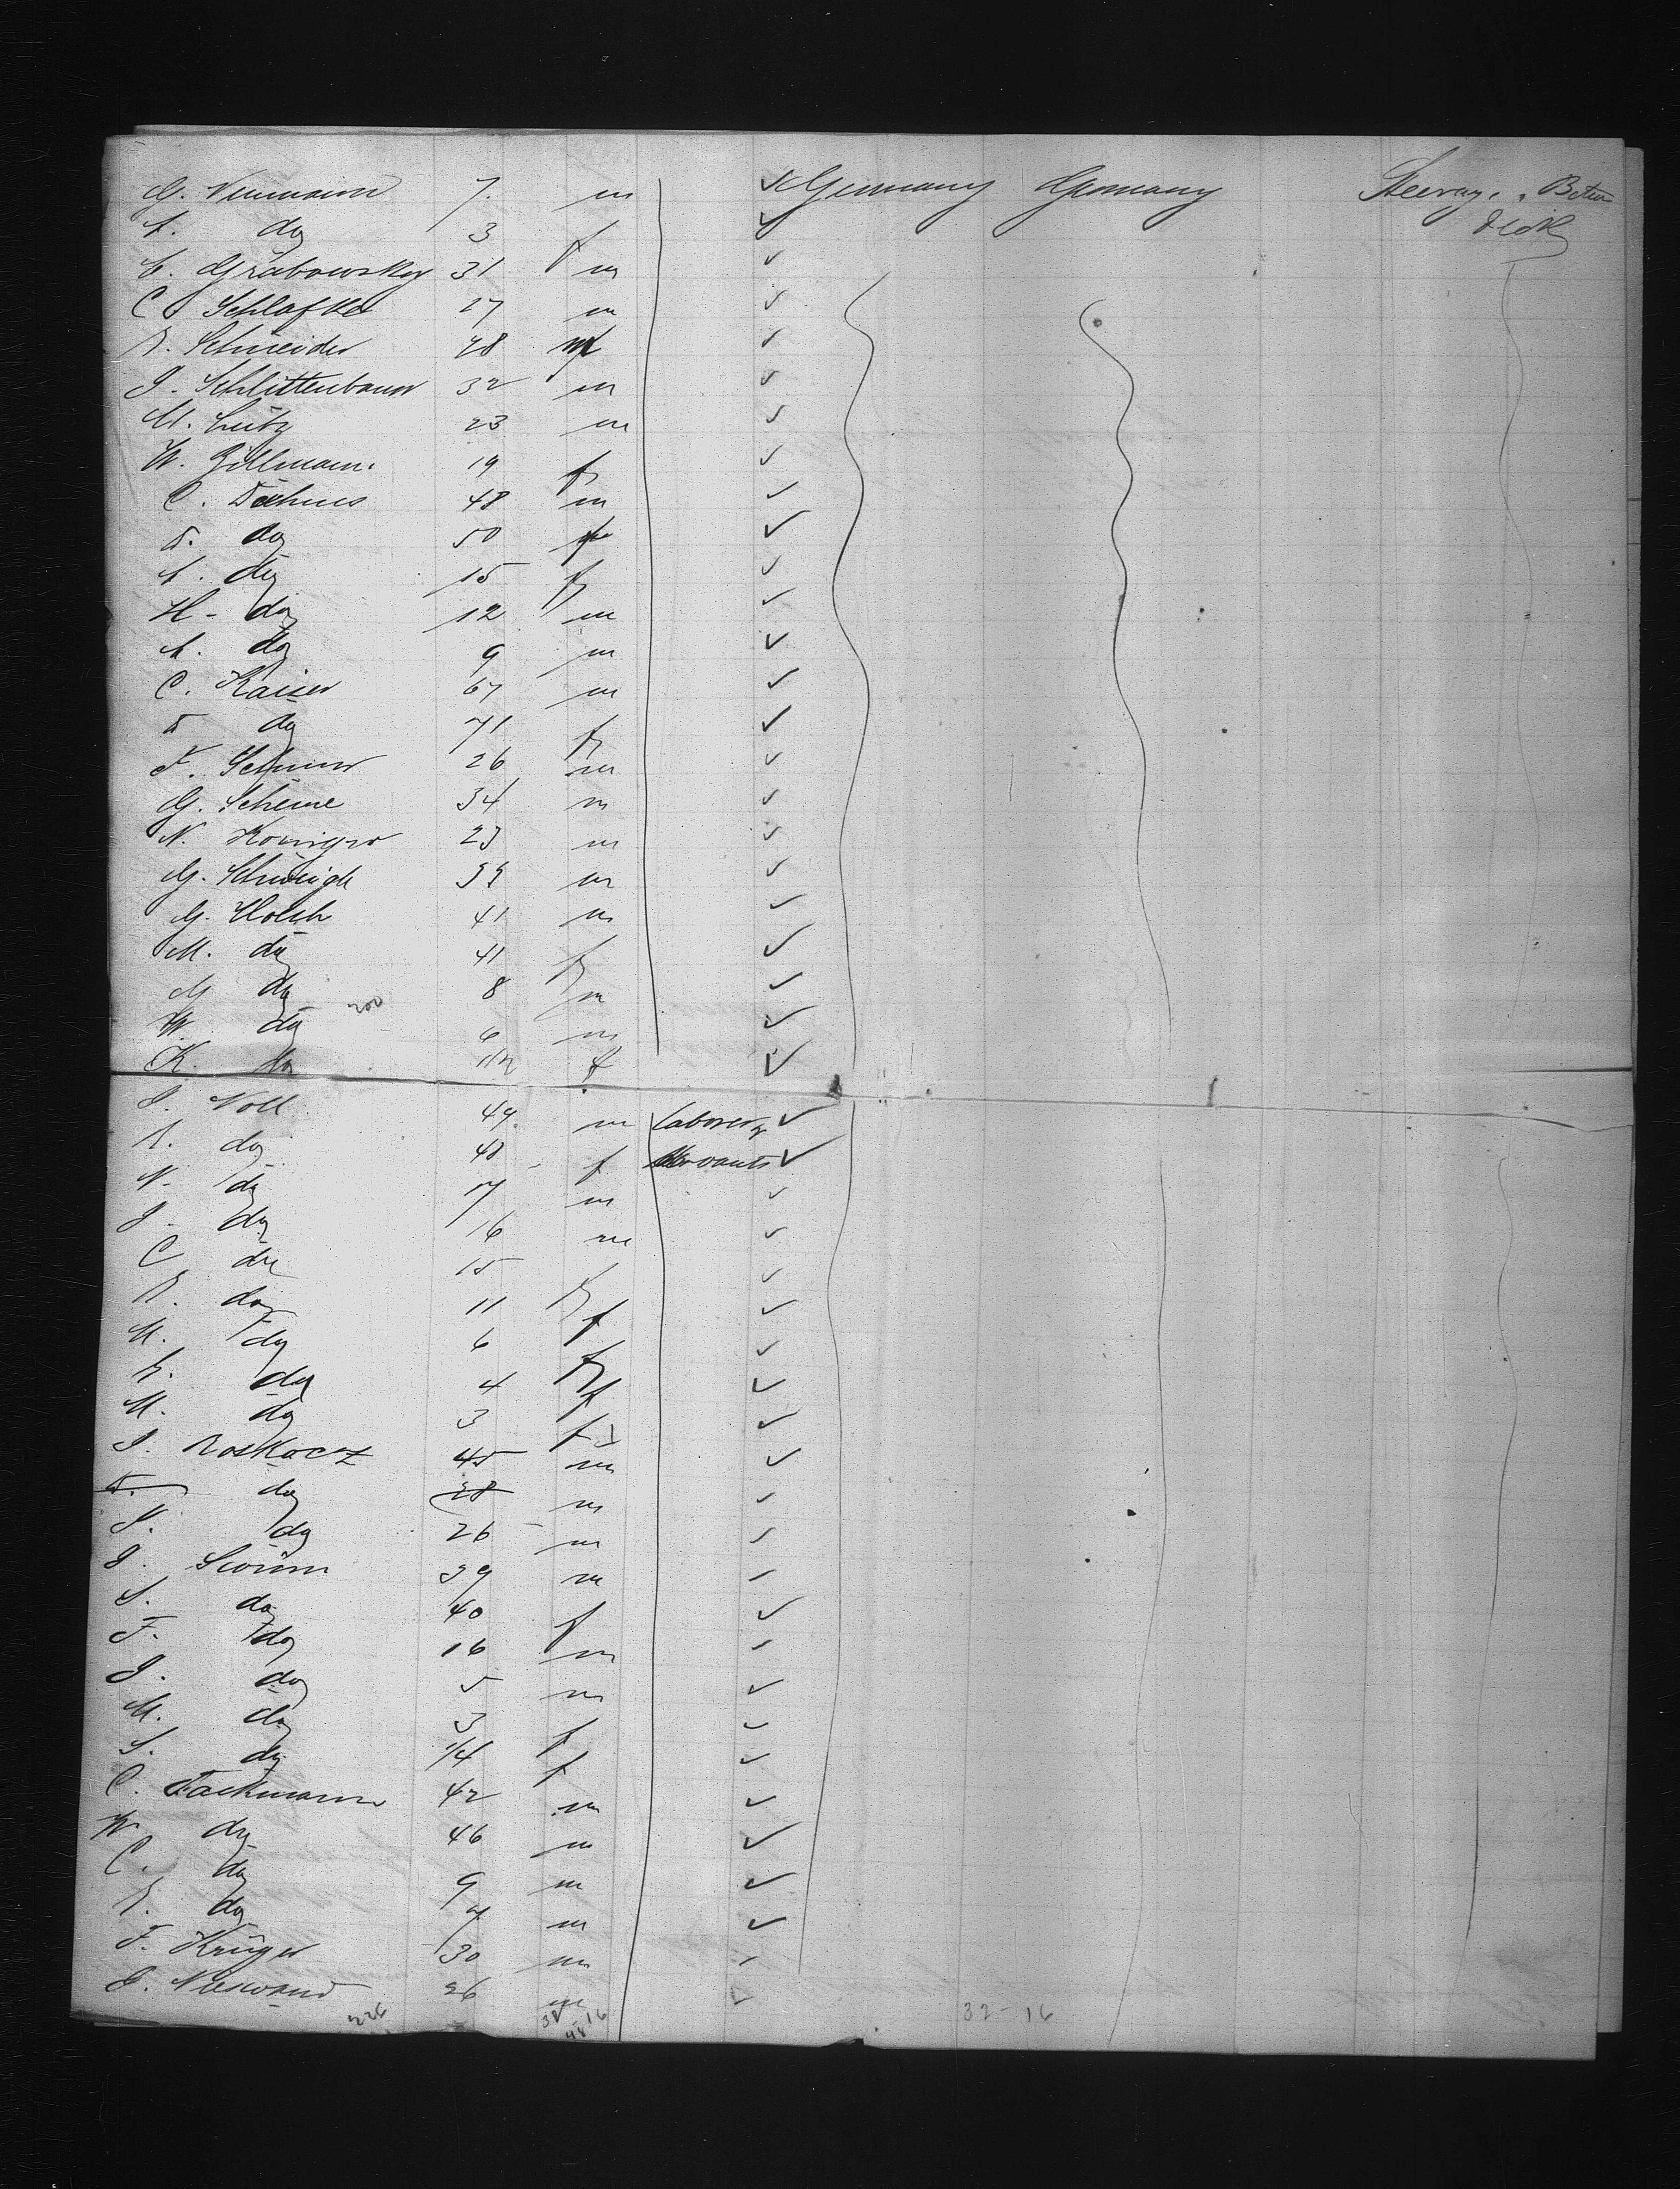 G. Neumann 7. m ✓ Germany Germany Steerag. Betw
A. do 3 f ✓ deck
C. Grabowsky 31 m ✓
C. Schlafke 27 m ✓
Schneider 48 ✓
J. Schlittenbauer 32 m ✓
M. Lutz 23 m ✓
W. Gillmann 19 f ✓
C. Dahms 48 m ✓
do 50 f ✓
A. do 15 f ✓
H. do 12 m ✓
A. do 9 m ✓
C. Kaiser 67 m ✓
do 71 f ✓
F. 26 m ✓
G. Scheine 34 m ✓
N. 23 m ✓
G. m ✓
G. Holch 41 m ✓
M. do 41 f ✓
G do 8 m ✓
200
W. do 6 m ✓
K. do 11/12 f ✓
J. Noll 49 m Laborer & ✓
do 48 f Servants ✓
N. do 17 m ✓
J. do 16 m ✓
C do 15 f ✓
do 11 f ✓
M. do 6 f ✓
do 4 f ✓
M. do 3 f ✓
J. Roskocz 45 m ✓
do 28 m ✓
do 26 m ✓
J. 39 m ✓
S. do 40 f ✓
F. do 16 m ✓
J. do 5 m ✓
M. do 3 f ✓
S. do 1/4 f ✓
C. Fackmann 42 m ✓
W do 46 m ✓
C. do 9 m ✓
do 7 m ✓
F. Krüger 30 m ✓
J. Nieswand 26 m ✓
226 32-16 32-16
48